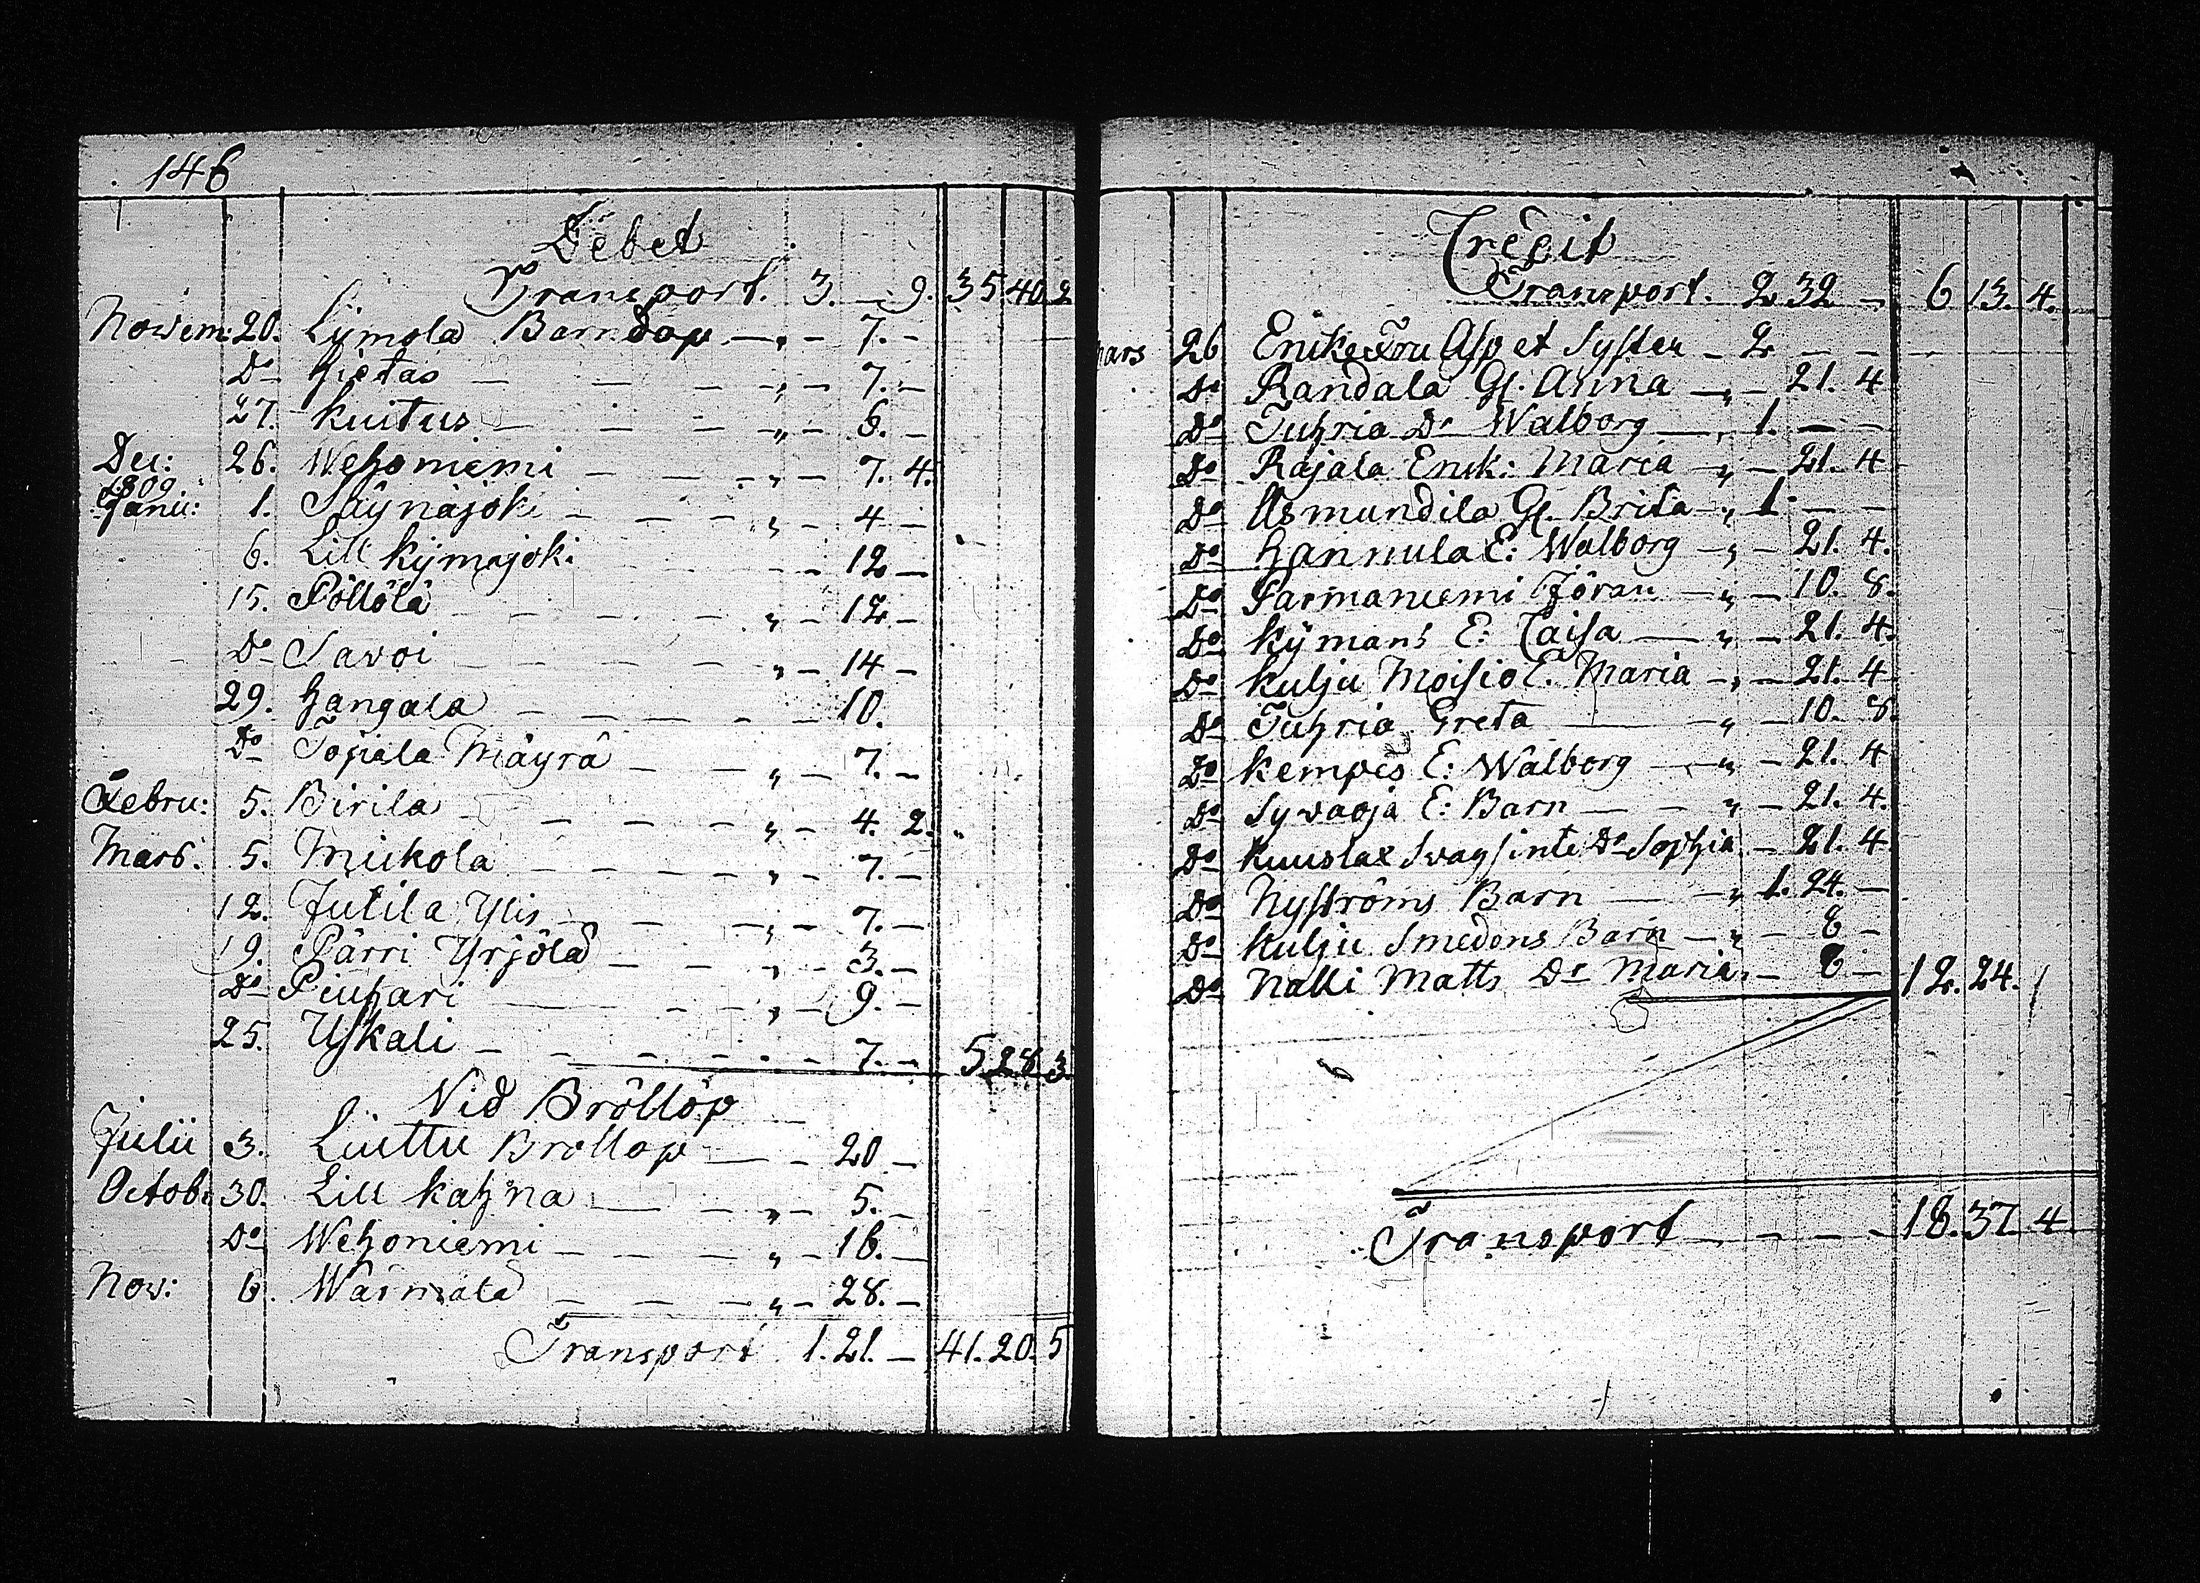 146
Debet
Transport. 3. — 9. 35 40. 2
Novem: 20. Lijmola Barndop — „ — 7. —
Do Hietas — — — „ — 7. —
27. Kuitus — — — „ — 6. —
Dec: 26. Wehoniemi — — „ — 7. 4.
1809.
Janu: 1. Säynäjoki — — — „ — 4 —
6. Lill Kijmajoki — — — 12 —
15. Pöllölä — — — „ — 12 —
Do Savoi — — — „ — 14 —
29. Hangala — — — — 10.
Do Topiala Mäyrä — — „ — 7. —
Febru: 5. Birila — — — „ — 4. 2.
Mars: 5. Mickola — — — „ — 7. —
12. Jutila Ylis — — — „ — 7. —
19. Pärri Yrjölä — — — „ — 3. —
Do Piuhari — — — „ — 9. —
25. Uskali — — — — 7. — 5. 28. 3.
Vid Bröllop
Julii 3. Liuttu Bröllop — — 20 —
Octob: 30. Lill Kahna — — „ — 5. —
Do Wehoniemi — — „ — 16. —
Nov: 6. Wärnälä — — — „ — 28. —
Transport 1. 21. — 41. 20. 5
Credit
Transport. 2 32 — 6 13. 4.
Mars 26 Enke Fru Asp et Syster — 2 — —
Do Randala Gl. Anna — „ — 21. 4
Do Juhria Dr Walborg — „ 1. — —
Do Rajala Enk: Maria — „ — 21. 4
Do Asmundila Gl. Brita — „ 1 — —
Do Hannula E: Walborg — „ — 21. 4.
Do Parmaniemi Jöran — „ — 10. 8.
Do Kijmans E: Caisa — „ — 21. 4.
Do Kulju Moisio E. Maria — „ — 21. 4
Do Juhria Greta — „ — 10. 8.
Do Kempes E: Walborg — „ — 21. 4
Do Syvaoja E: Barn — — „ — 21. 4.
Do Kuustax Svagsinte Dr Sophia — 21. 4
Do Nyströms Barn — „ 1. 24. —
Do Kulju Smedens Barn — „ — 8 —
Do Nalli Matts Dr Maria — 8 — 12. 24.
Transport — — — — 18. 37. 4